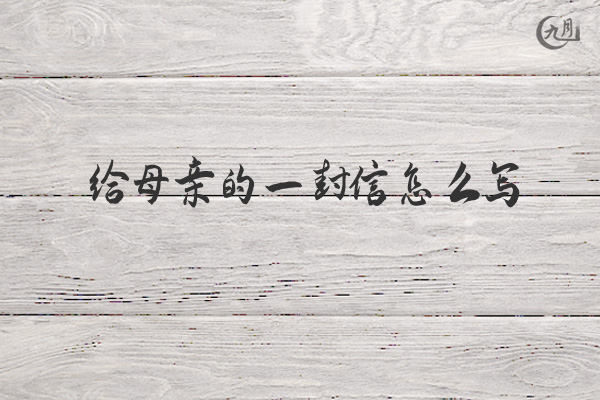 九月
给母亲的一封信怎么写